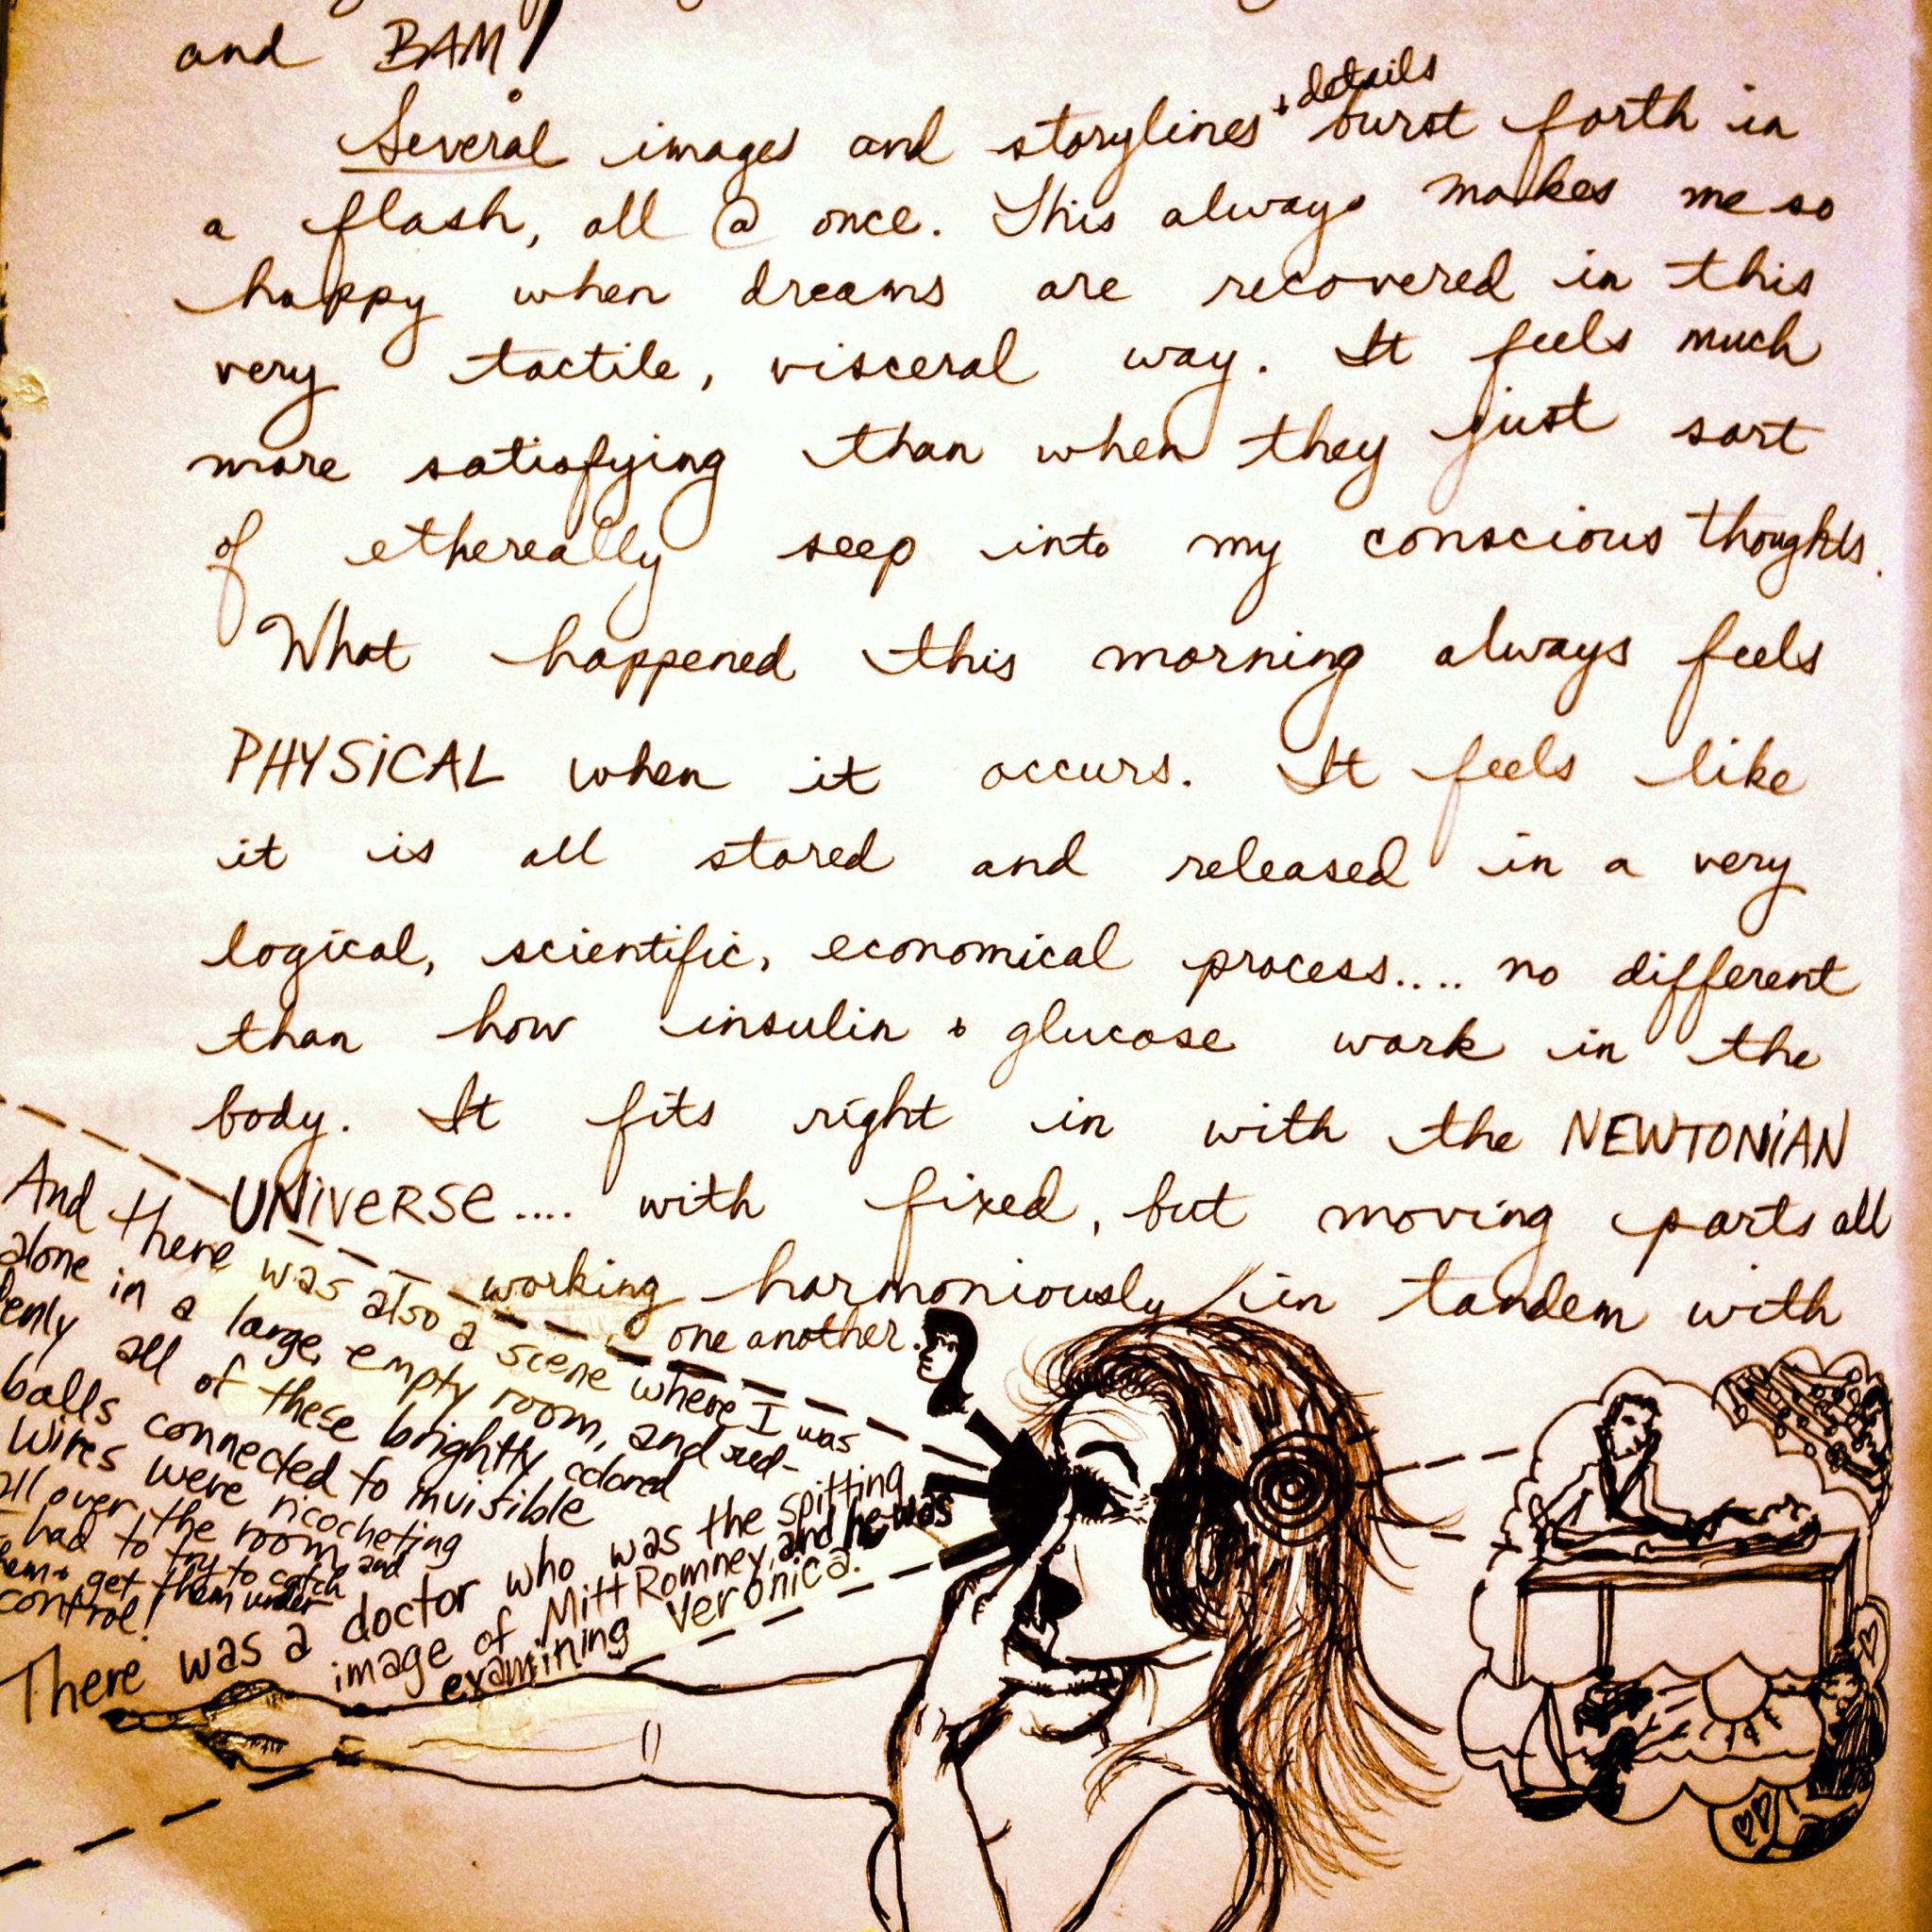 and BAM!
Several images and storylines + details burst forth in
a flash, all @ once. This always makes me so
happy when dreams are recovered in this
very tactile, visceral way. It feels much
more satisfying than when they just sort
of ethereally seep into my conscious thoughts.
What happened this morning always feels
PHYSICAL when it occurs. It feels like
it is all stored and released in a very
logical, scientific, economical process.... no different
than how insulin + glucose work in the
body. It fits right in with the NEWTONIAN
UNIVERSE.... with fixed, but moving parts all
working harmoniously / in tandem with
one another.
And there was also a scene where I was
alone in a large, empty room, and sud-
denly all of these brightly colored
balls connected to invisible
wires were ricocheting
all over the room, and
I had to try to catch
them + get them under
control!
There was a doctor who was the spitting
image of Mitt Romney, and he was
examining Veronica.